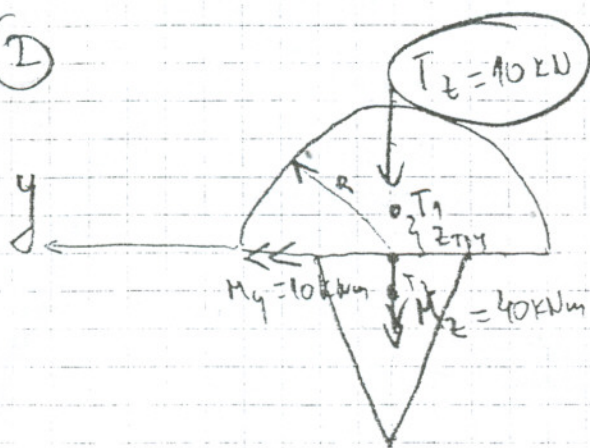 I
T_z = 10 kN
y
R
T_1
M_y = 10 kNm
T_2
M_z = 40 kNm